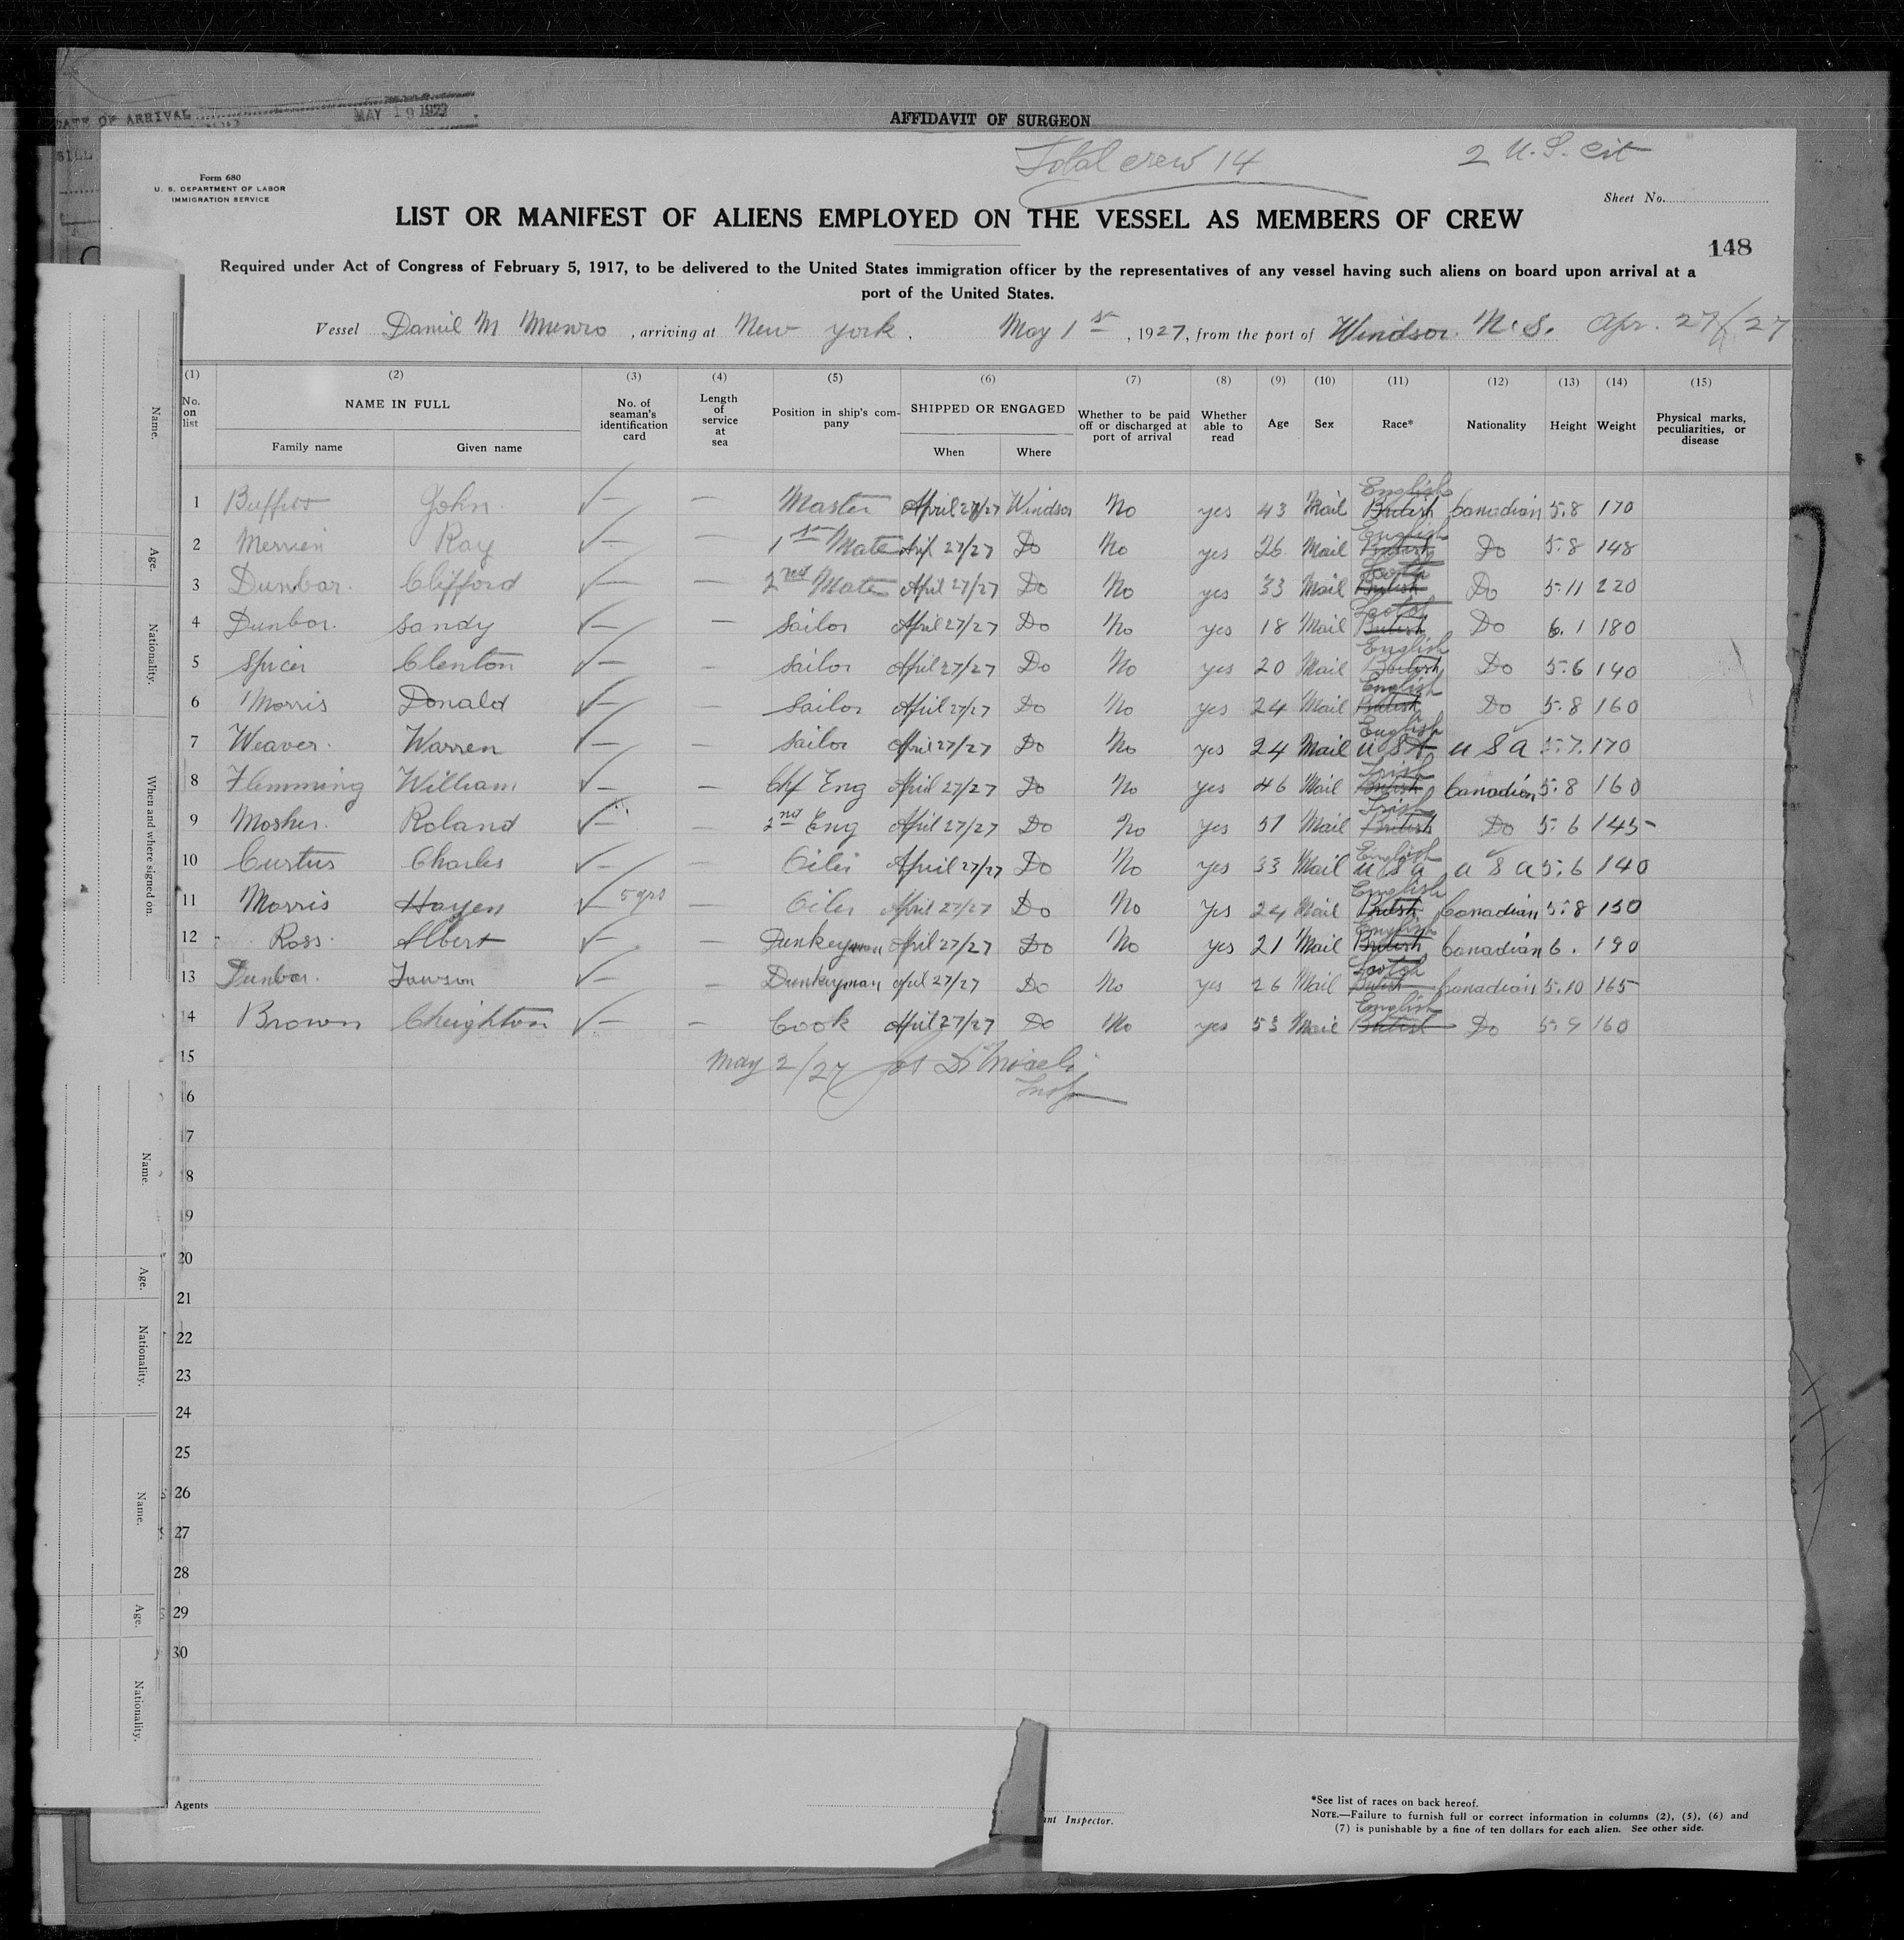 DATE OF ARRIVAL MAY 19 1927
AFFIDAVIT OF SURGEON
Total crew 14
2 U.S. Cit
Form 680
U. S. DEPARTMENT OF LABOR
IMMIGRATION SERVICE
Sheet No.
LIST OR MANIFEST OF ALIENS EMPLOYED ON THE VESSEL AS MEMBERS OF CREW
148
Required under Act of Congress of February 5, 1917, to be delivered to the United States immigration officer by the representatives of any vessel having such aliens on board upon arrival at a
port of the United States.
Vessel Daniel M Munro, arriving at New york, May 1st, 1927, from the port of Windsor. N.S. Apr. 27/27
(1) (2) (3) (4) (5) (6) (7) (8) (9) (10) (11) (12) (13) (14) (15)
No. on list NAME IN FULL Family name Given name No. of seaman's identification card Length of service at sea Position in ship's company SHIPPED OR ENGAGED When Where Whether to be paid off or discharged at port of arrival Whether able to read Age Sex Race* Nationality Height Weight Physical marks, peculiarities, or disease
1 John Master April 27/27 Windsor No yes 43 Mail British English Canadian 5.8 170
2 Merrien Ray 1st Mate April 27/27 Do No yes 26 Mail British English Do 5.8 148
3 Dunbar. Clifford 2nd Mate April 27/27 Do No yes 33 Mail British Scotch Do 5.11 220
4 Dunbar. Sandy Sailor April 27/27 Do No yes 18 Mail British Scotch Do 6.1 180
5 Spicer Clenton Sailor April 27/27 Do No yes 20 Mail British English Do 5.6 140
6 Morris Donald Sailor April 27/27 Do No yes 24 Mail British English Do 5.8 160
7 Weaver. Warren Sailor April 27/27 Do No yes 24 Mail USA English USA 5.7. 170
8 Flemming William Chf Eng April 27/27 Do No yes 46 Mail British Irish Canadian 5.8 160
9 Mosher. Roland 2nd Eng April 27/27 Do No yes 51 Mail British Irish Do 5.6 145
10 Curtus Charles Oiler April 27/27 Do No yes 33 Mail usa English USA 5.6 140
11 Morris Hayen 5 yrs Oiler April 27/27 Do No yes 24 Mail British English Canadian 5.8 150
12 Ross. Albert Dunkeyman April 27/27 Do No yes 21 Mail British English Canadian 6. 190
13 Dunbar. Dunkeyman April 27/27 Do No yes 26 Mail British Scotch Canadian 5.10 165
14 Brown Cheighton Cook April 27/27 Do No yes 53 Mail British English Do 5.9 160
15 May 2/27
16 Insp
17
18
19
20
21
22
23
24
25
26
27
28
29
30
Agents
nt Inspector.
*See list of races on back hereof.
NOTE.—Failure to furnish full or correct information in columns (2), (5), (6) and
(7) is punishable by a fine of ten dollars for each alien. See other side.
Name.
Age.
Nationality.
When and where signed on.
Name.
Age.
Nationality.
Name.
Age.
Nationality.